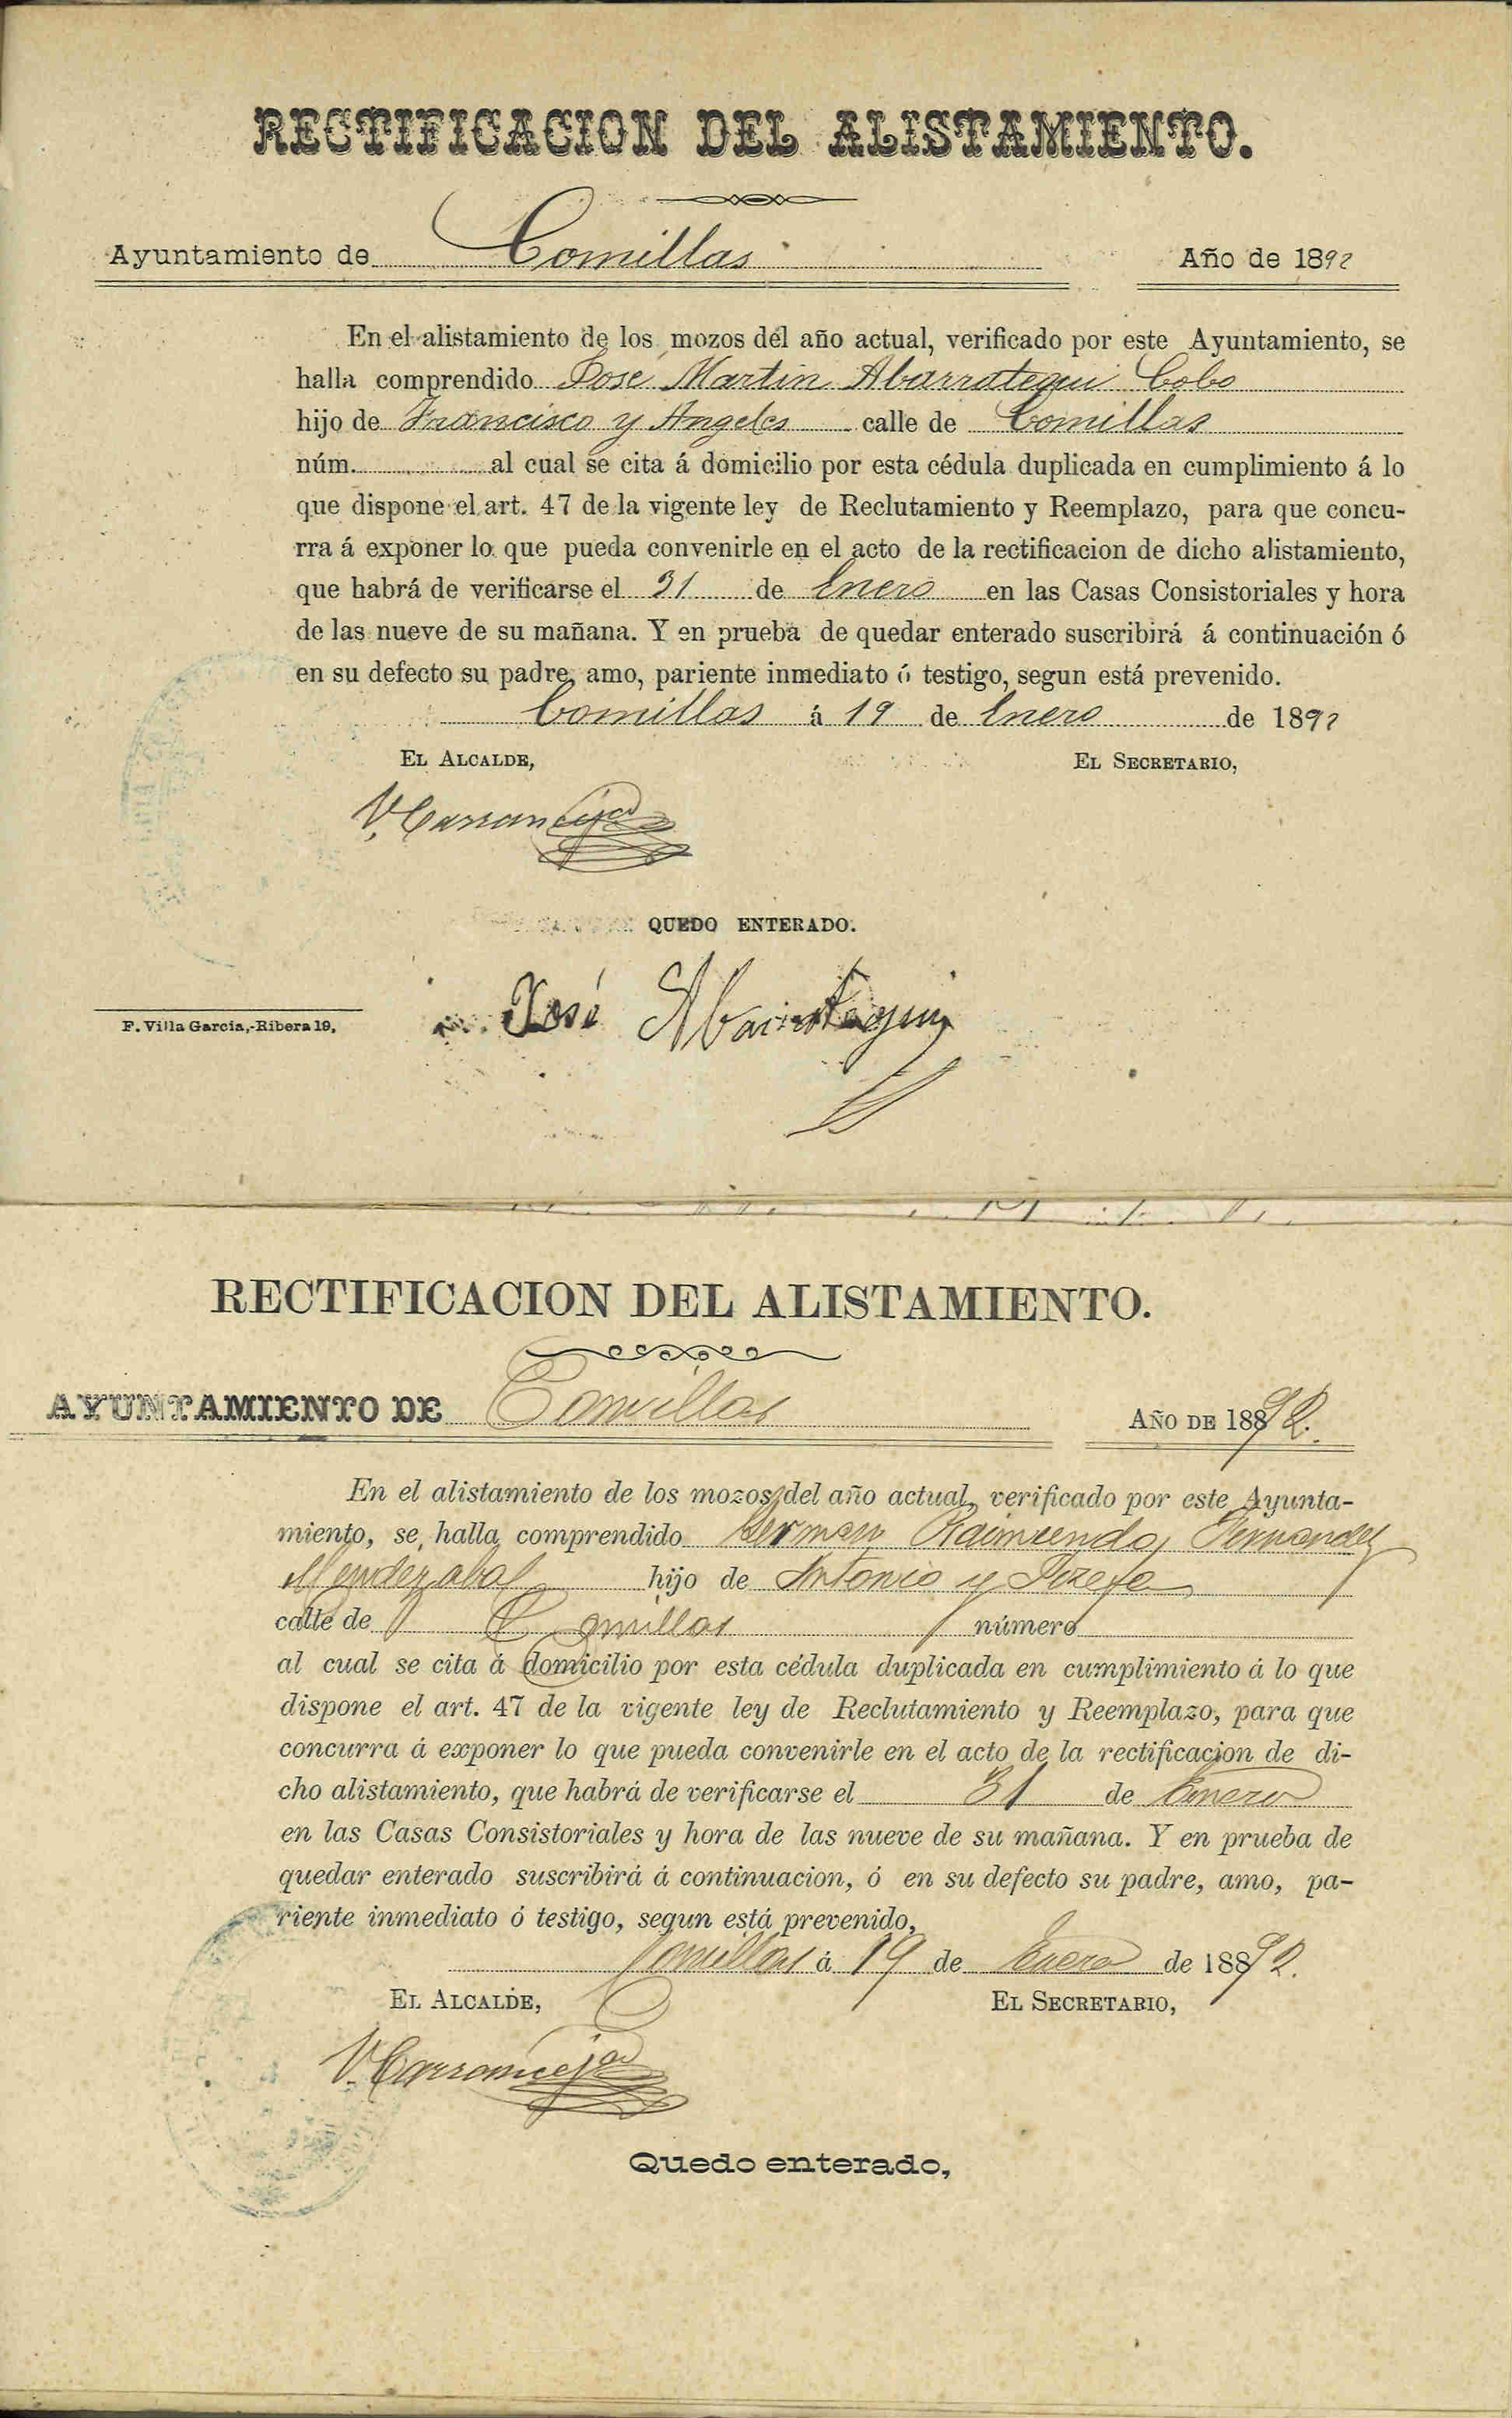 RECTIFICACION DEL ALISTAMIENTO.
Ayuntamiento de Comillas Año de 1892
En el alistamiento de los mozos del año actual, verificado por este Ayuntamiento, se
halla comprendido Jose Martin Abarrategui Cobo
hijo de Francisco y Angeles calle de Comillas
núm. al cual se cita á domicilio por esta cédula duplicada en cumplimiento á lo
que dispone el art. 47 de la vigente ley de Reclutamiento y Reemplazo, para que concu-
rra á exponer lo que pueda convenirle en el acto de la rectificacion de dicho alistamiento,
que habrá de verificarse el 31 de Enero en las Casas Consistoriales y hora
de las nueve de su mañana. Y en prueba de quedar enterado suscribirá á continuación ó
en su defecto su padre, amo, pariente inmediato ó testigo, segun está prevenido.
Comillas á 19 de Enero de 1892
EL ALCALDE, EL SECRETARIO,
V. Carranceja
QUEDO ENTERADO.
José Abarrategui
F. Villa Garcia,-Ribera 19,
RECTIFICACION DEL ALISTAMIENTO.
AYUNTAMIENTO DE Comillas AÑO DE 18892.
En el alistamiento de los mozos del año actual, verificado por este Ayunta-
miento, se halla comprendido German Raimundo Fernandez
Mendezabal hijo de Antonio y Jozefa
calle de Comillas número
al cual se cita á domicilio por esta cédula duplicada en cumplimiento á lo que
dispone el art. 47 de la vigente ley de Reclutamiento y Reemplazo, para que
concurra á exponer lo que pueda convenirle en el acto de la rectificacion de di-
cho alistamiento, que habrá de verificarse el 31 de Enero
en las Casas Consistoriales y hora de las nueve de su mañana. Y en prueba de
quedar enterado suscribirá á continuacion, ó en su defecto su padre, amo, pa-
riente inmediato ó testigo, segun está prevenido,
Comillas á 19 de Enero de 18892.
EL ALCALDE, EL SECRETARIO,
V. Carranceja
Quedo enterado,